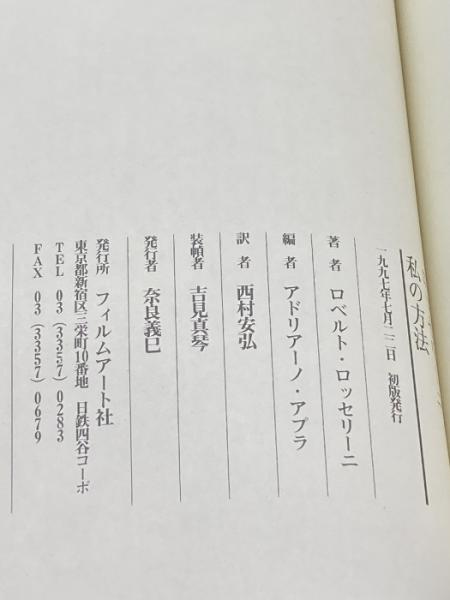 私の方法
一九九七年七月二二日 初版発行
著者 ロベルト・ロッセリーニ
編者 アドリアーノ・アプラ
訳者 西村安弘
装幀者 吉見真琴
発行者 奈良義巳
発行所 フィルムアート社
東京都新宿区三栄町10番地 日鉄四谷コーポ
TEL 03(3357)0283
FAX 03(3357)0679